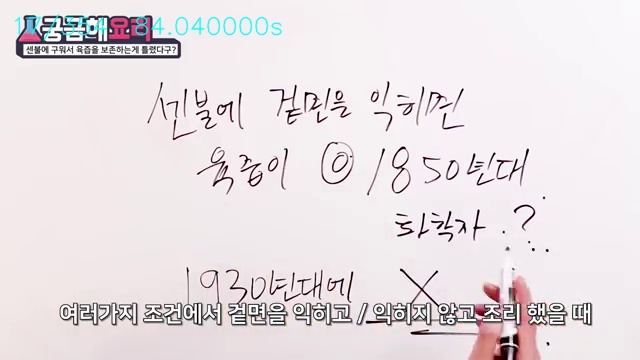 궁금해요리
센불에 구워서 육즙을 보존하는게 틀렸다구?
센불에 겉면을 익히면
육즙이 ◎ 1850년대
화학자 . ?
1930년대에 X
여러가지 조건에서 겉면을 익히고 / 익히지 않고 조리 했을 때